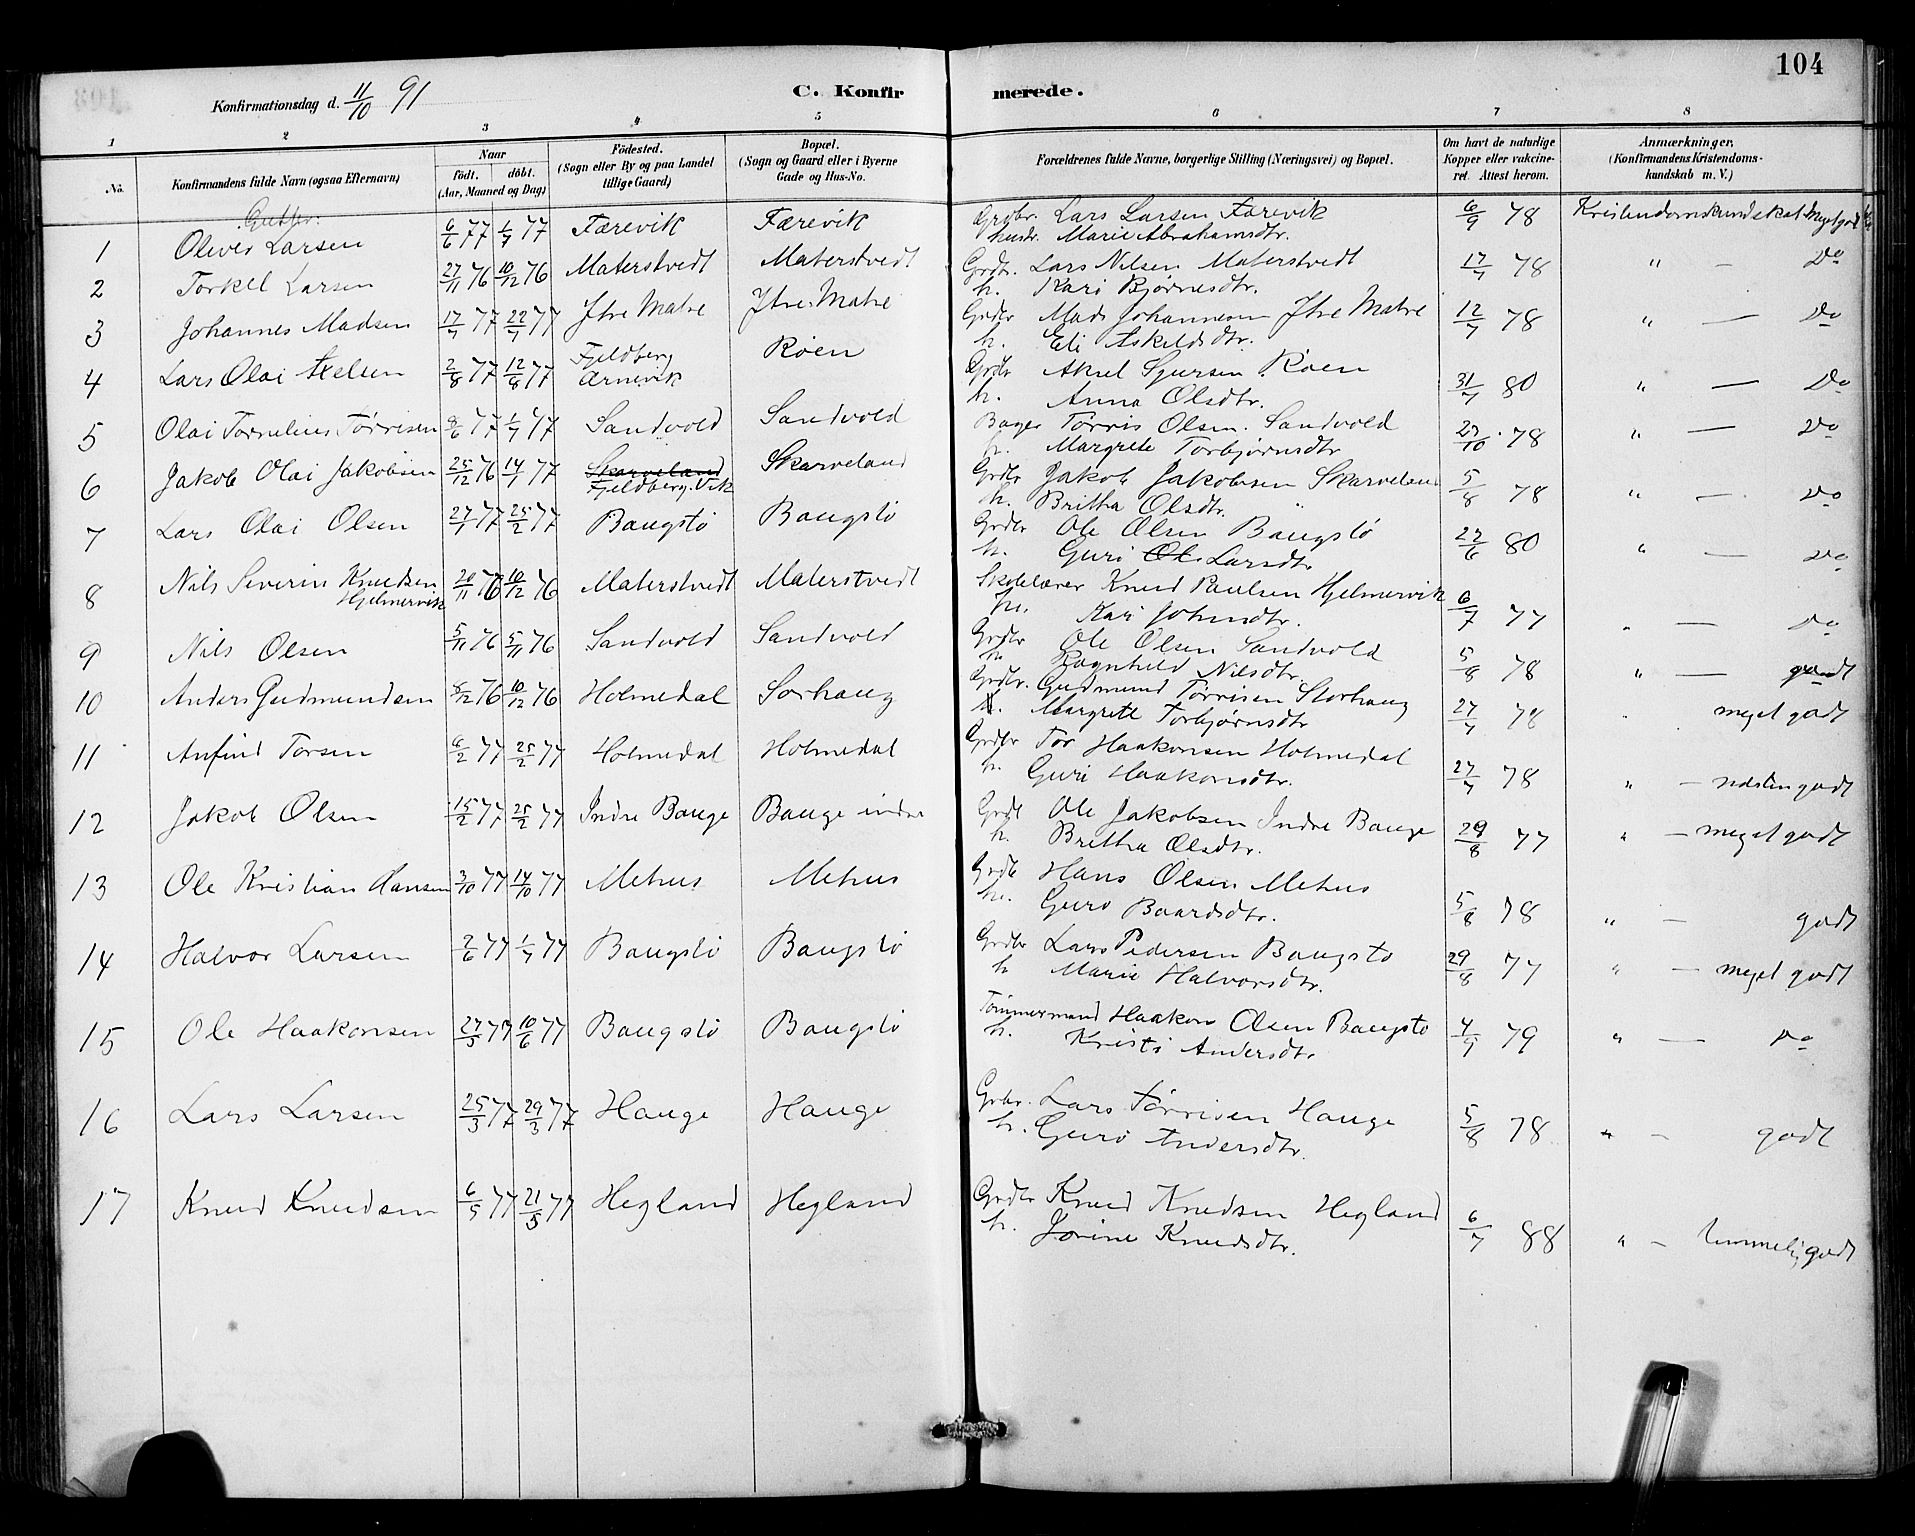 104
Konfirmationsdag d. 11/10 91
C. Konfirmerede.
1 2 3 4 5 6 7 8
No.
Konfirmandens fulde Navn (ogsaa Efternavn)
Naar
født. døbt.
(Aar, Maaned og Dag)
Fødested.
(Sogn eller By og paa Landet
tillige Gaard)
Bopæl.
(Sogn og Gaard eller i Byerne
Gade og Hus-No.
Forældrenes fulde Navne, borgerlige Stilling (Næringsvei) og Bopæl.
Om havt de naturlige
Kopper eller vakcine-
ret. Attest herom.
Anmærkninger.
(Konfirmandens Kristendoms-
kundskab m. V.)
Gutter:
1 Oliver Larsen 6/6 77 1/7 77 Færevik Færevik Grdbr. Lars Larsen Færevik 6/9 78 Kristendomskundskab meget godt
hustr. Marie Abrahamsdtr.
2 Torkel Larsen 27/11 76 10/12 76 Materstvedt Materstvedt Grdbr. Lars Nilsen Materstvedt 17/7 78 " — Do
h. Kari Bjørnesdtr.
3 Johannes Madsen 17/7 77 22/7 77 Ytre Matre Ytre Matre Grdbr Mads Johannesen Ytre Matre 12/7 78 " — Do
h. Eli Askildsdtr.
4 Lars Olai Axelsen 2/8 77 12/8 77 Fjeldberg Røen Grdbr Aksel Sjursen Røen 31/7 80 " — Do
Arnevik h. Anna Olsdtr.
5 Olai Tornelius Tørrisen 9/6 77 1/7 77 Sandvold Sandvold Bager Tørris Olsen Sandvold 23/10 78 " — Do
h. Margrete Torbjørnsdtr
6 Jakob Olai Jakobsen 25/12 76 14/1 77 Skarveland Skarveland Grdbr Jakob Jakobsen Skarveland 5/8 78 " — Do
Fjeldberg Vik h. Britha Olsdtr.
7 Lars Olai Olsen 27/1 77 25/2 77 Baugstø Baugstø Grdbr Ole Olsen Baugstø 27/6 80 " — Do
h. Guri Ols Larsdtr
8 Nils Severin Knudsen 20/11 76 10/12 76 Materstvedt Materstvedt Skolelærer Knud Paulsen Hjelmervik 6/7 77 " — Do
Hjelmervik h. Kari Johnsdtr.
9 Nils Olsen 5/11 76 5/11 76 Sandvold Sandvold Grdbr Ole Olsen Sandvold 5/8 78 " — godt
h. Ragnhild Nilsdtr.
10 Anders Gudmundsen 5/12 76 10/12 76 Holmedal Sorhaug Grdbr. Gudmund Tørrisen Storhaug 27/7 78 meget godt
h. Margrete Torbjørnsdtr
11 Anfind Torsen 6/2 77 25/2 77 Holmedal Holmedal Grdbr Tor Haakonsen Holmedal 27/7 78 " — næsten godt
h. Guri Haakonsdtr.
12 Jakob Olsen 15/2 77 25/2 77 Indre Bauge Bauge indre Grdb Ole Jakobsen Indre Bauge 29/8 77 " — meget godt
h. Britha Olsdtr.
13 Ole Kristian Hansen 3/10 77 14/10 77 Mehus Mehus Grdb Hans Olsen Mehus 5/8 78 " — godt
h. Guro Baardsdtr.
14 Halvor Larsen 2/6 77 1/7 77 Baugstø Baugstø Grdbr Lars Pedersen Baugstø 29/8 77 " — meget godt
h Marie Halvorsdtr.
15 Ole Haakonsen 27/5 77 10/6 77 Baugstø Baugstø Tømmermand Haakon Olsen Baugstø 4/9 79 " — Do
h. Kristi Andersdtr
16 Lars Larsen 25/3 77 29/3 77 Hauge Hauge Grbr. Lars Tørrisen Hauge 5/8 78 " — godt
h. Guro Andersdtr.
17 Knud Knudsen 6/5 77 21/5 77 Hegland Hegland Grdbr Knud Knudsen Hegland 6/7 88 " — temmelig godt
h. Jorine Knudsdtr.